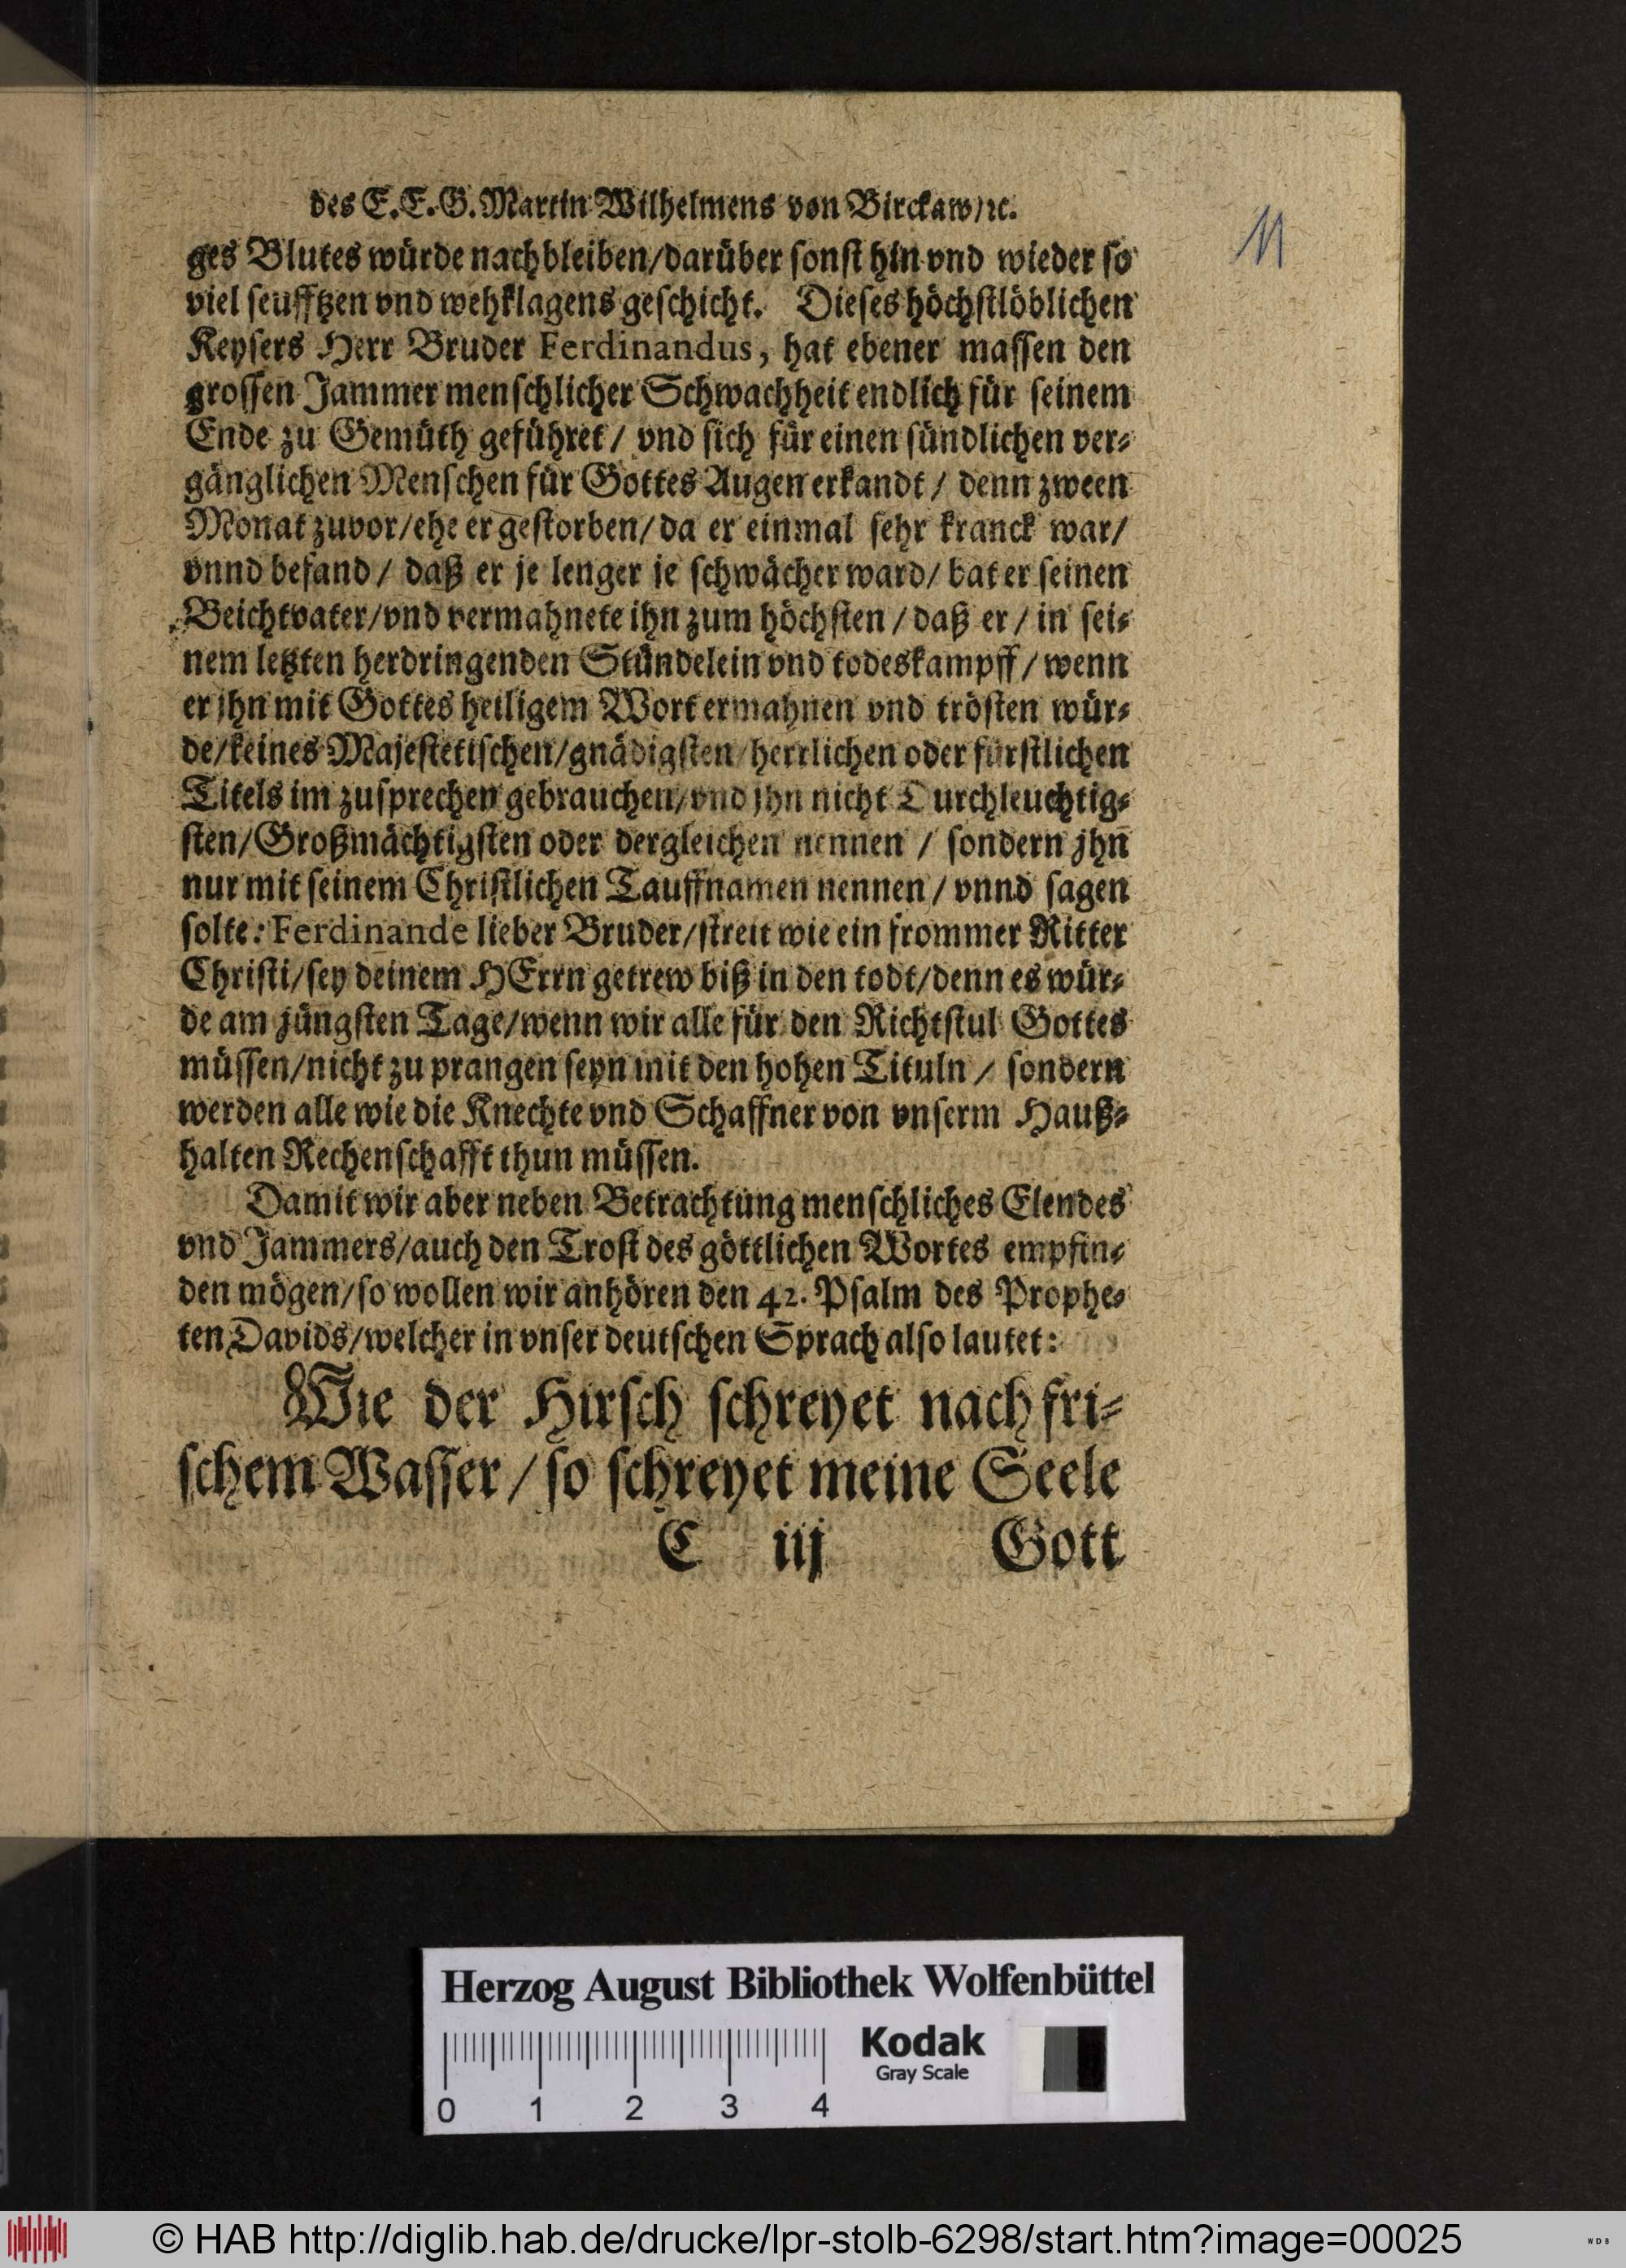 des E. E. G. Martin Wilhelmens von Birckaw/ ꝛc.
11
ges Blutes würde nachbleiben/darüber sonst hin vnd wieder so
viel seufftzen vnd wehklagens geschicht. Dieses höchstlöblichen
Keysers Herr Bruder Ferdinandus, hat ebener massen den
grossen Jammer menschlicher Schwachheit endlich für seinem
Ende zu Gemüth geführet / vnd sich für einen sündlichen ver-
gänglichen Menschen für Gottes Augen erkandt / denn zween
Monat zuvor/ehe er gestorben/da er einmal sehr kranck war/
vnnd befand / daß er je lenger je schwächer ward/ bat er seinen
Beichtvater/vnd vermahnete ihn zum höchsten / daß er / in sei-
nem letzten herdringenden Stündelein vnd todeskampff / wenn
er jhn mit Gottes heiligem Wort ermahnen vnd trösten wür-
de/keines Majestetischen/gnädigsten/herrlichen oder fürstlichen
Titels im zusprechen gebrauchen/vnd jhn nicht Durchleuchtig-
sten/Großmächtigsten oder dergleichen nennen / sondern jhn
nur mit seinem Christlichen Tauffnamen nennen / vnnd sagen
solte: Ferdinande lieber Bruder/streit wie ein frommer Ritter
Christi/sey deinem HErrn getrew biß in den todt/denn es wür-
de am jüngsten Tage/wenn wir alle für den Richtstul Gottes
müssen/nicht zu prangen seyn mit den hohen Tituln / sondern
werden alle wie die Knechte vnd Schaffner von vnserm Hauß-
halten Rechenschafft thun müssen.
Damit wir aber neben Betrachtung menschliches Elendes
vnd Jammers/auch den Trost des göttlichen Wortes empfin-
den mögen/so wollen wir anhören den 42. Psalm des Prophe-
ten Davids/welcher in vnser deutschen Sprach also lautet:
Wie der Hirsch schreyet nach fri-
schem Wasser / so schreyet meine Seele
C iij Gott
Herzog August Bibliothek Wolfenbüttel
Kodak
Gray Scale
0 1 2 3 4
© HAB http://diglib.hab.de/drucke/lpr-stolb-6298/start.htm?image=00025
WDB